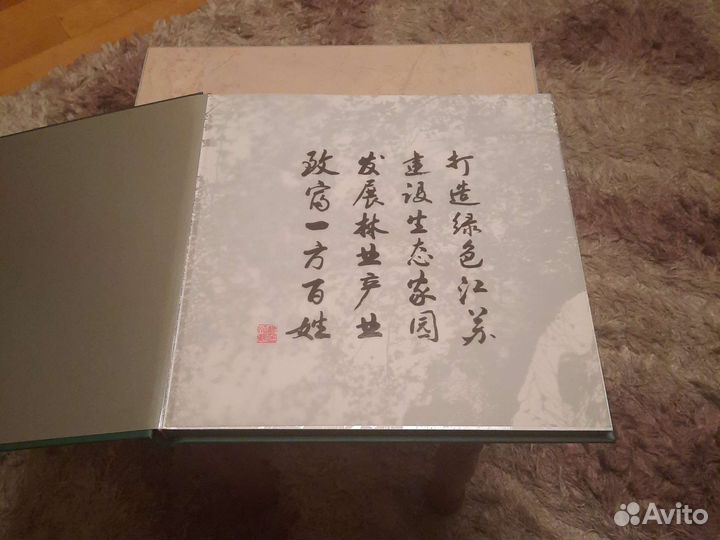 打造绿色江苏
建设生态家园
发展林业产业
致富一方百姓
Avito